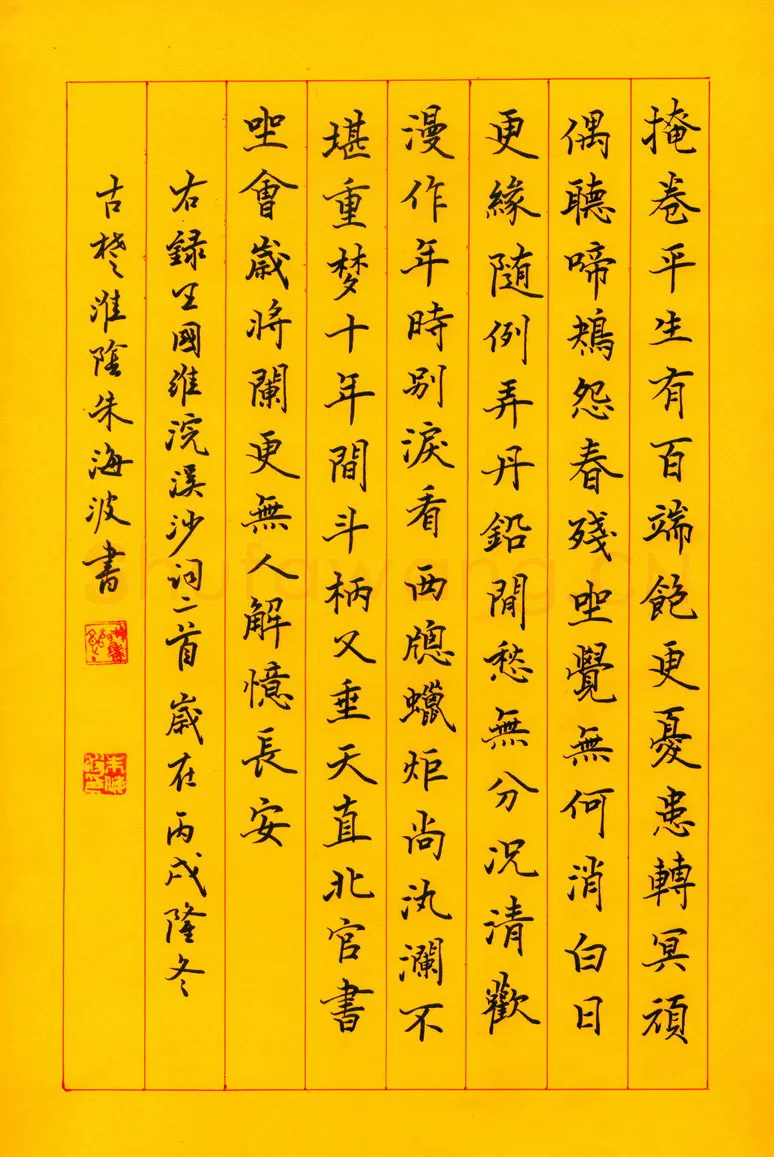 掩卷平生有百端飽更憂患轉冥頑
偶聽啼鴂怨春殘坐覺無何消白日
更緣隨例弄丹鉛閒愁無分況清歡
漫作年時別淚看西牕蠟炬尚汍瀾不
堪重梦十年間斗柄又垂天直北官書
坐會歲將闌更無人解憶長安
右録王國維浣溪沙词二首歲在丙戌隆冬
古楚淮陰朱海波書
Shufawang.CN